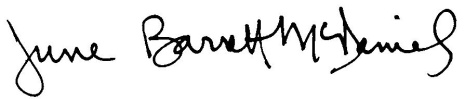 June Barrett McDaniel